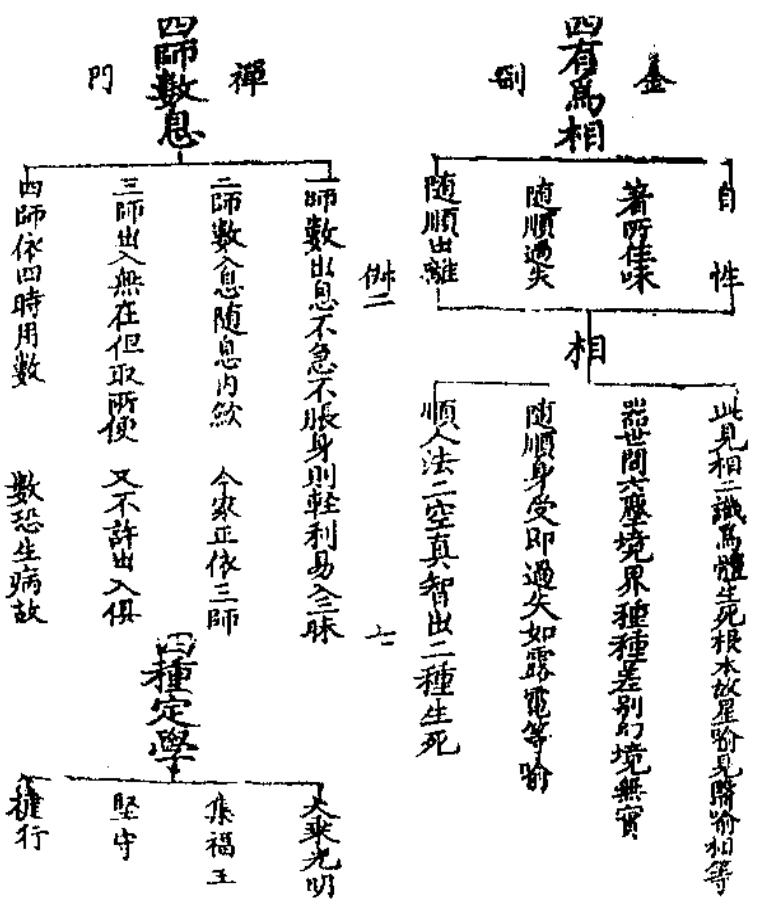 金剛
四有爲相
自性
著所住味
隨順過失
隨順出離
相
此見相二識爲體生死根本故星喻見翳喻相等
器世間六塵境界種種差別幻境無實
隨順身受即過失如露電等喻
順人法二空真智出二種生死
卌二
七
禪門
四師數息
一師數出息不急不脹身則輕利易入三昧
二師數入息隨息內斂 今家正依三師
三師出入無在但取所便 又不許出入俱
四師依四時用數 數恐生病故
四種定學
大乘光明
集福王
堅守
健行